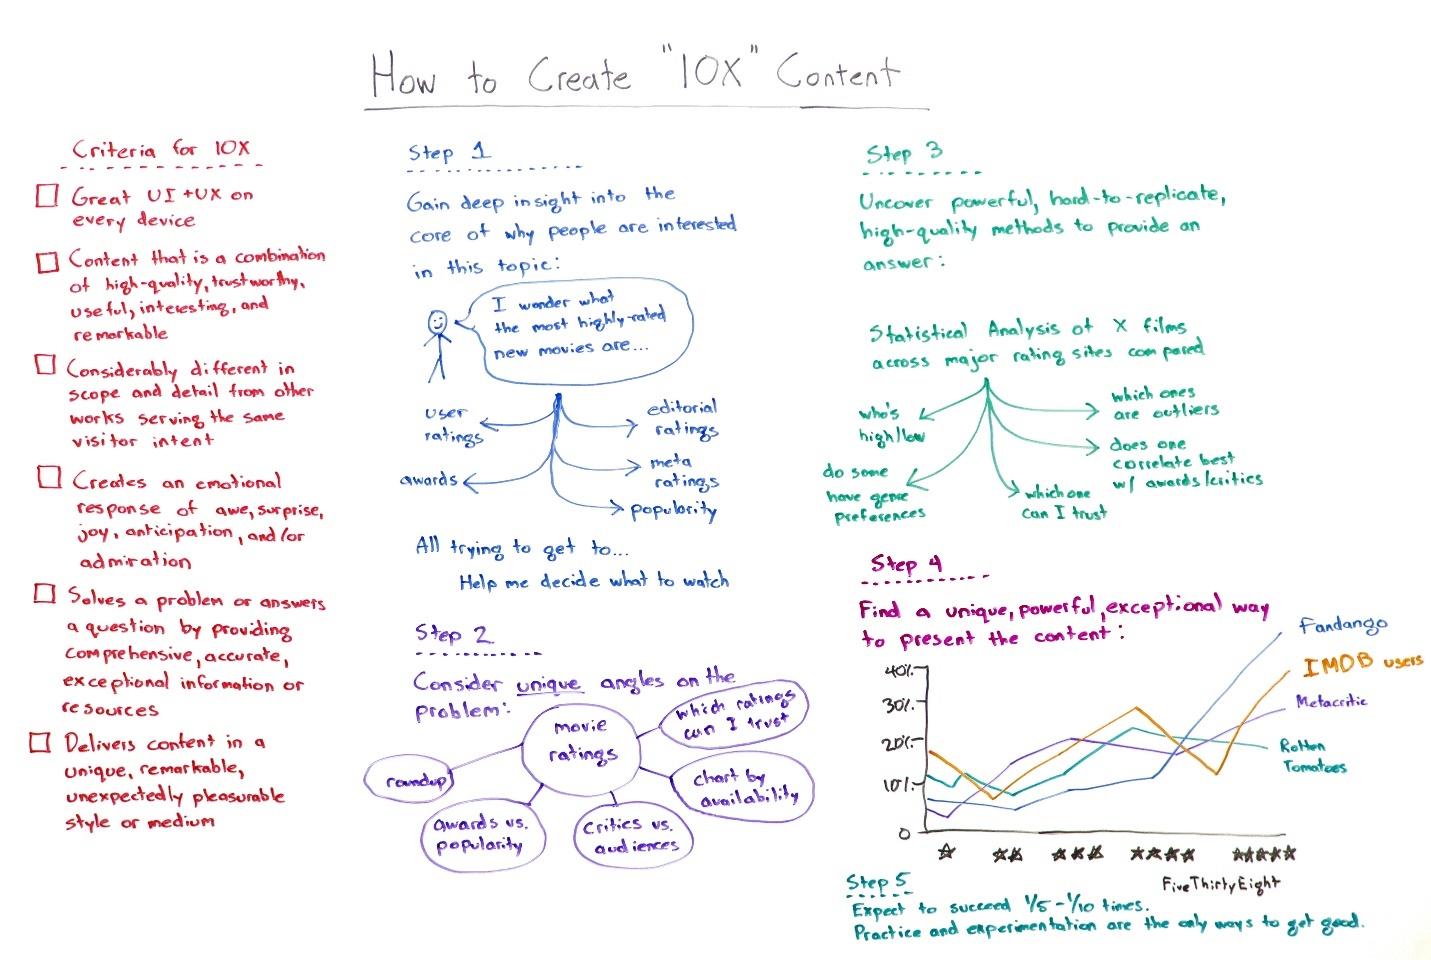 How to Create "10X" Content
Criteria for 10X
Great UI + UX on
every device
Content that is a combination
of high-quality, trustworthy,
useful, interesting, and
remarkable
Considerably different in
scope and detail from other
works serving the same
visitor intent
Creates an emotional
response of awe, surprise,
joy, anticipation, and/or
admiration
Solves a problem or answers
a question by providing
comprehensive, accurate,
exceptional information or
resources
Delivers content in a
unique, remarkable,
unexpectedly pleasurable
style or medium
Step 1
Gain deep insight into the
core of why people are interested
in this topic:
I wonder what
the most highly-rated
new movies are...
user
ratings
editorial
ratings
awards
meta
ratings
popularity
All trying to get to...
Help me decide what to watch
Step 2
Consider unique angles on the
problem:
movie
ratings
which ratings
can I trust
roundup
chart by
availability
awards vs.
popularity
critics vs.
audiences
Step 3
Uncover powerful, hard-to-replicate,
high-quality methods to provide an
answer:
Statistical Analysis of X films
across major rating sites compared
who's
high/low
which ones
are outliers
do some
have genre
preferences
which one
can I trust
does one
correlate best
w/ awards/critics
Step 4
Find a unique, powerful, exceptional way
to present the content:
40%
30%
20%
10%
0
Fandango
IMDB users
Metacritic
Rotten
Tomatoes
FiveThirtyEight
Step 5
Expect to succeed 1/5 - 1/10 times.
Practice and experimentation are the only ways to get good.